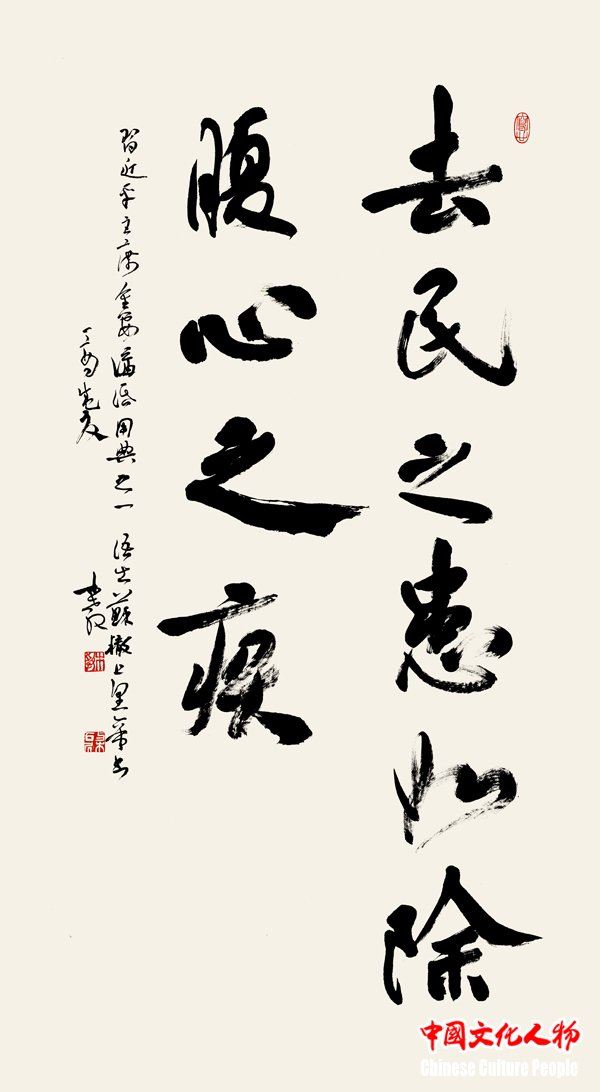 去民之患如除
腹心之疾
習近平主席重要講話用典之一 語出蘇轍上皇帝書
丁酉
中國文化人物
Chinese Culture People